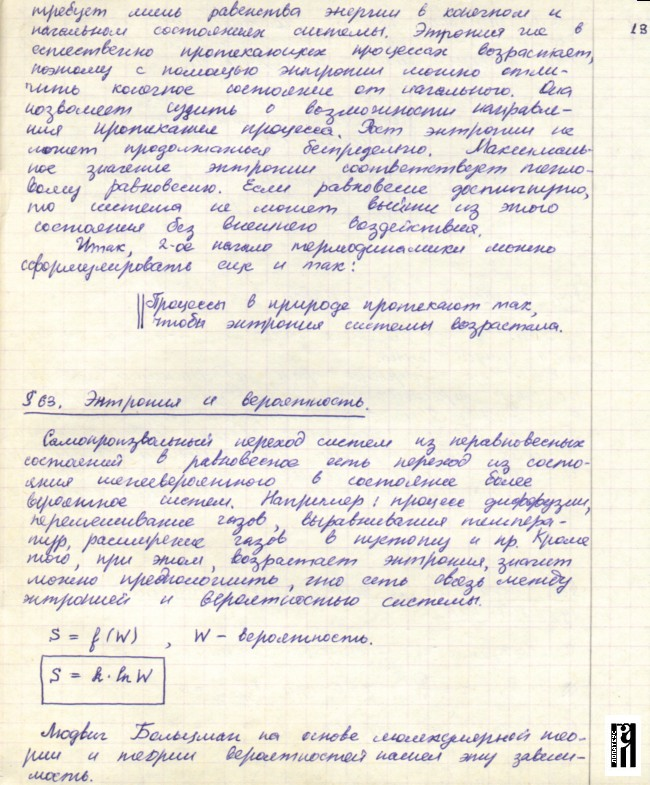 требует лишь равенства энергии в конечном и
начальном состояниях системы. Энтропия же в
естественно протекающих процессах возрастает,
поэтому с помощью энтропии можно отли-
чить конечное состояние от начального. Она
позволяет судить о возможности направле-
ния протекания процесса. Рост энтропии не
может продолжаться беспредельно. Максималь-
ное значение энтропии соответствует тепло-
вому равновесию. Если равновесие достигнуто,
то система не может выйти из этого
состояния без внешнего воздействия.
Итак, 2-ое начало термодинамики можно
сформулировать еще и так:
Процессы в природе протекают так,
чтобы энтропия системы возрастала.
§ 63. Энтропия и вероятность.
Самопроизвольный переход систем из неравновесных
состояний в равновесное есть переход из состо-
яния менеевероятного в состояние более
вероятное систем. Например: процесс диффузии,
перемешивание газов, выравнивания темпера-
тур, расширение газов в пустоту и пр. Кроме
того, при этом, возрастает энтропия, значит
можно предположить, что есть связь между
энтропией и вероятностью системы.
S = f(W), W – вероятность.
S = k·lnW
Людвиг Больцман на основе молекулярной тео-
рии и теории вероятностей нашел эту зависи-
мость.